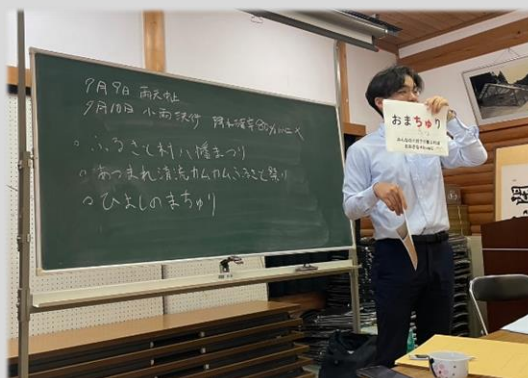 9月9日 雨天中止
9月10日 小雨決行 降水確率80%
ふるさと村八幡まつり
あつまれ清流カムカムふるさと祭り
ひよしのまちゅり
おまちゅり